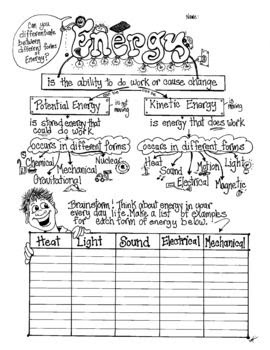 Name:
Can you
differentiate
between
different forms
of
Energy?
Energy
is the ability to do work or cause change
Potential Energy is not moving
Kinetic Energy is moving
is stored energy that
could do work.
is energy that does work
occurs in different forms
occurs in different forms
Chemical
Nuclear
Mechanical
Gravitational
Heat
Sound
Motion
Light
Electrical
Magnetic
Brainstorm! Think about energy in your
every day life. Make a list of examples
for each form of energy below.
Heat Light Sound Electrical Mechanical